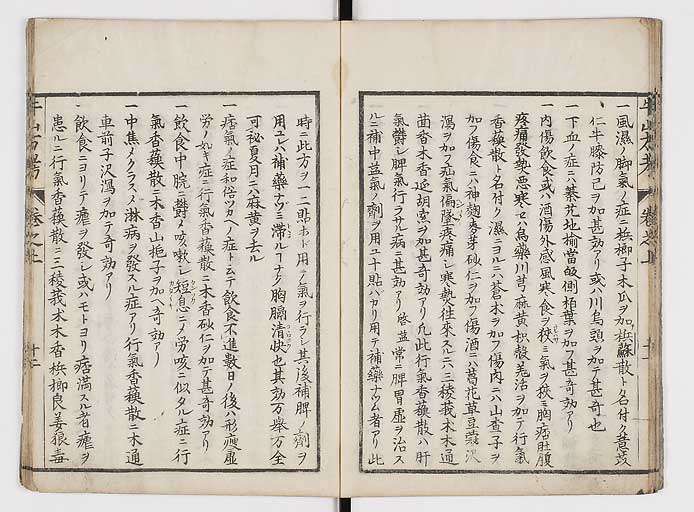 一風濕ノ脚氣ノ症ニ檳榔子木瓜ヲ加檳蘇散ト名付ク薏苡
仁牛膝防已ヲ加甚効アリ或ハ川烏頭ヲ加テ甚奇也
一下血ノ症ニハ芷地榆當皈側栢葉ヲ加フ甚奇効アリ
一内傷飲食或ハ酒傷外感風寒食ヲ狹ミ氣ヲ狹ミ胸痞肚腹
疼痛發熱悪寒セハ烏藥川芎麻黄枳殻羌活ヲ加テ行氣
香蘓散ト名付ク濕ニヨルニハ蒼朮ヲ加フ傷肉ニハ山查子ヲ
加フ傷食ニハ神麴麥芽砂仁ヲ加フ傷酒ニハ葛花草豆蔻沢
瀉ヲ加フ疝氣偏墜疼痛シ寒熱往來スルニハ三稜莪朮木通
茴香木香延胡索ヲ加甚奇効アリ凡此行氣香蘓散ハ肝
氣鬱シ脾氣行ラサル病ニ甚効アリ啓益常ニ脾胃虚ヲ治ス
ルニ補中益氣ノ劑ヲ用ニ十貼バカリ用テ補藥ナツム者アリ此
時ニ此方ヲ一二貼ホト用テ氣ヲ行ラシ其後補脾ノ劑ヲ
用ユレハ補藥ナツミ滯ルヿナク胸膈清快也其効万擧万全
可祕夏月ニハ麻黄ヲ去ル
一痞氣ノ症和俗ツカヘノ症ト云テ飲食不進數日ノ後ハ形瘦虛
労ノ如キ症ニ行氣香蘓散ニ木香砂仁ヲ加テ甚奇効アリ
一飲食中脘ニ鬱メ咳嗽シ短息シテ労咳ニ似タル症ニ行
氣香蘓散ニ木香山梔子ヲ加ヘ奇効アリ
一中焦ノクラスメ淋病ヲ發スル症アリ行氣香蘓散ニ木通
車前子沢瀉ヲ加テ奇効アリ
一飲食ニヨリテ瘧ヲ發シ或ハモトヨリ痞滿スル者瘧ヲ
患ルニ行氣香蘓散ニ三稜莪朮木香檳榔良姜狼毒
牛山方考
卷之上